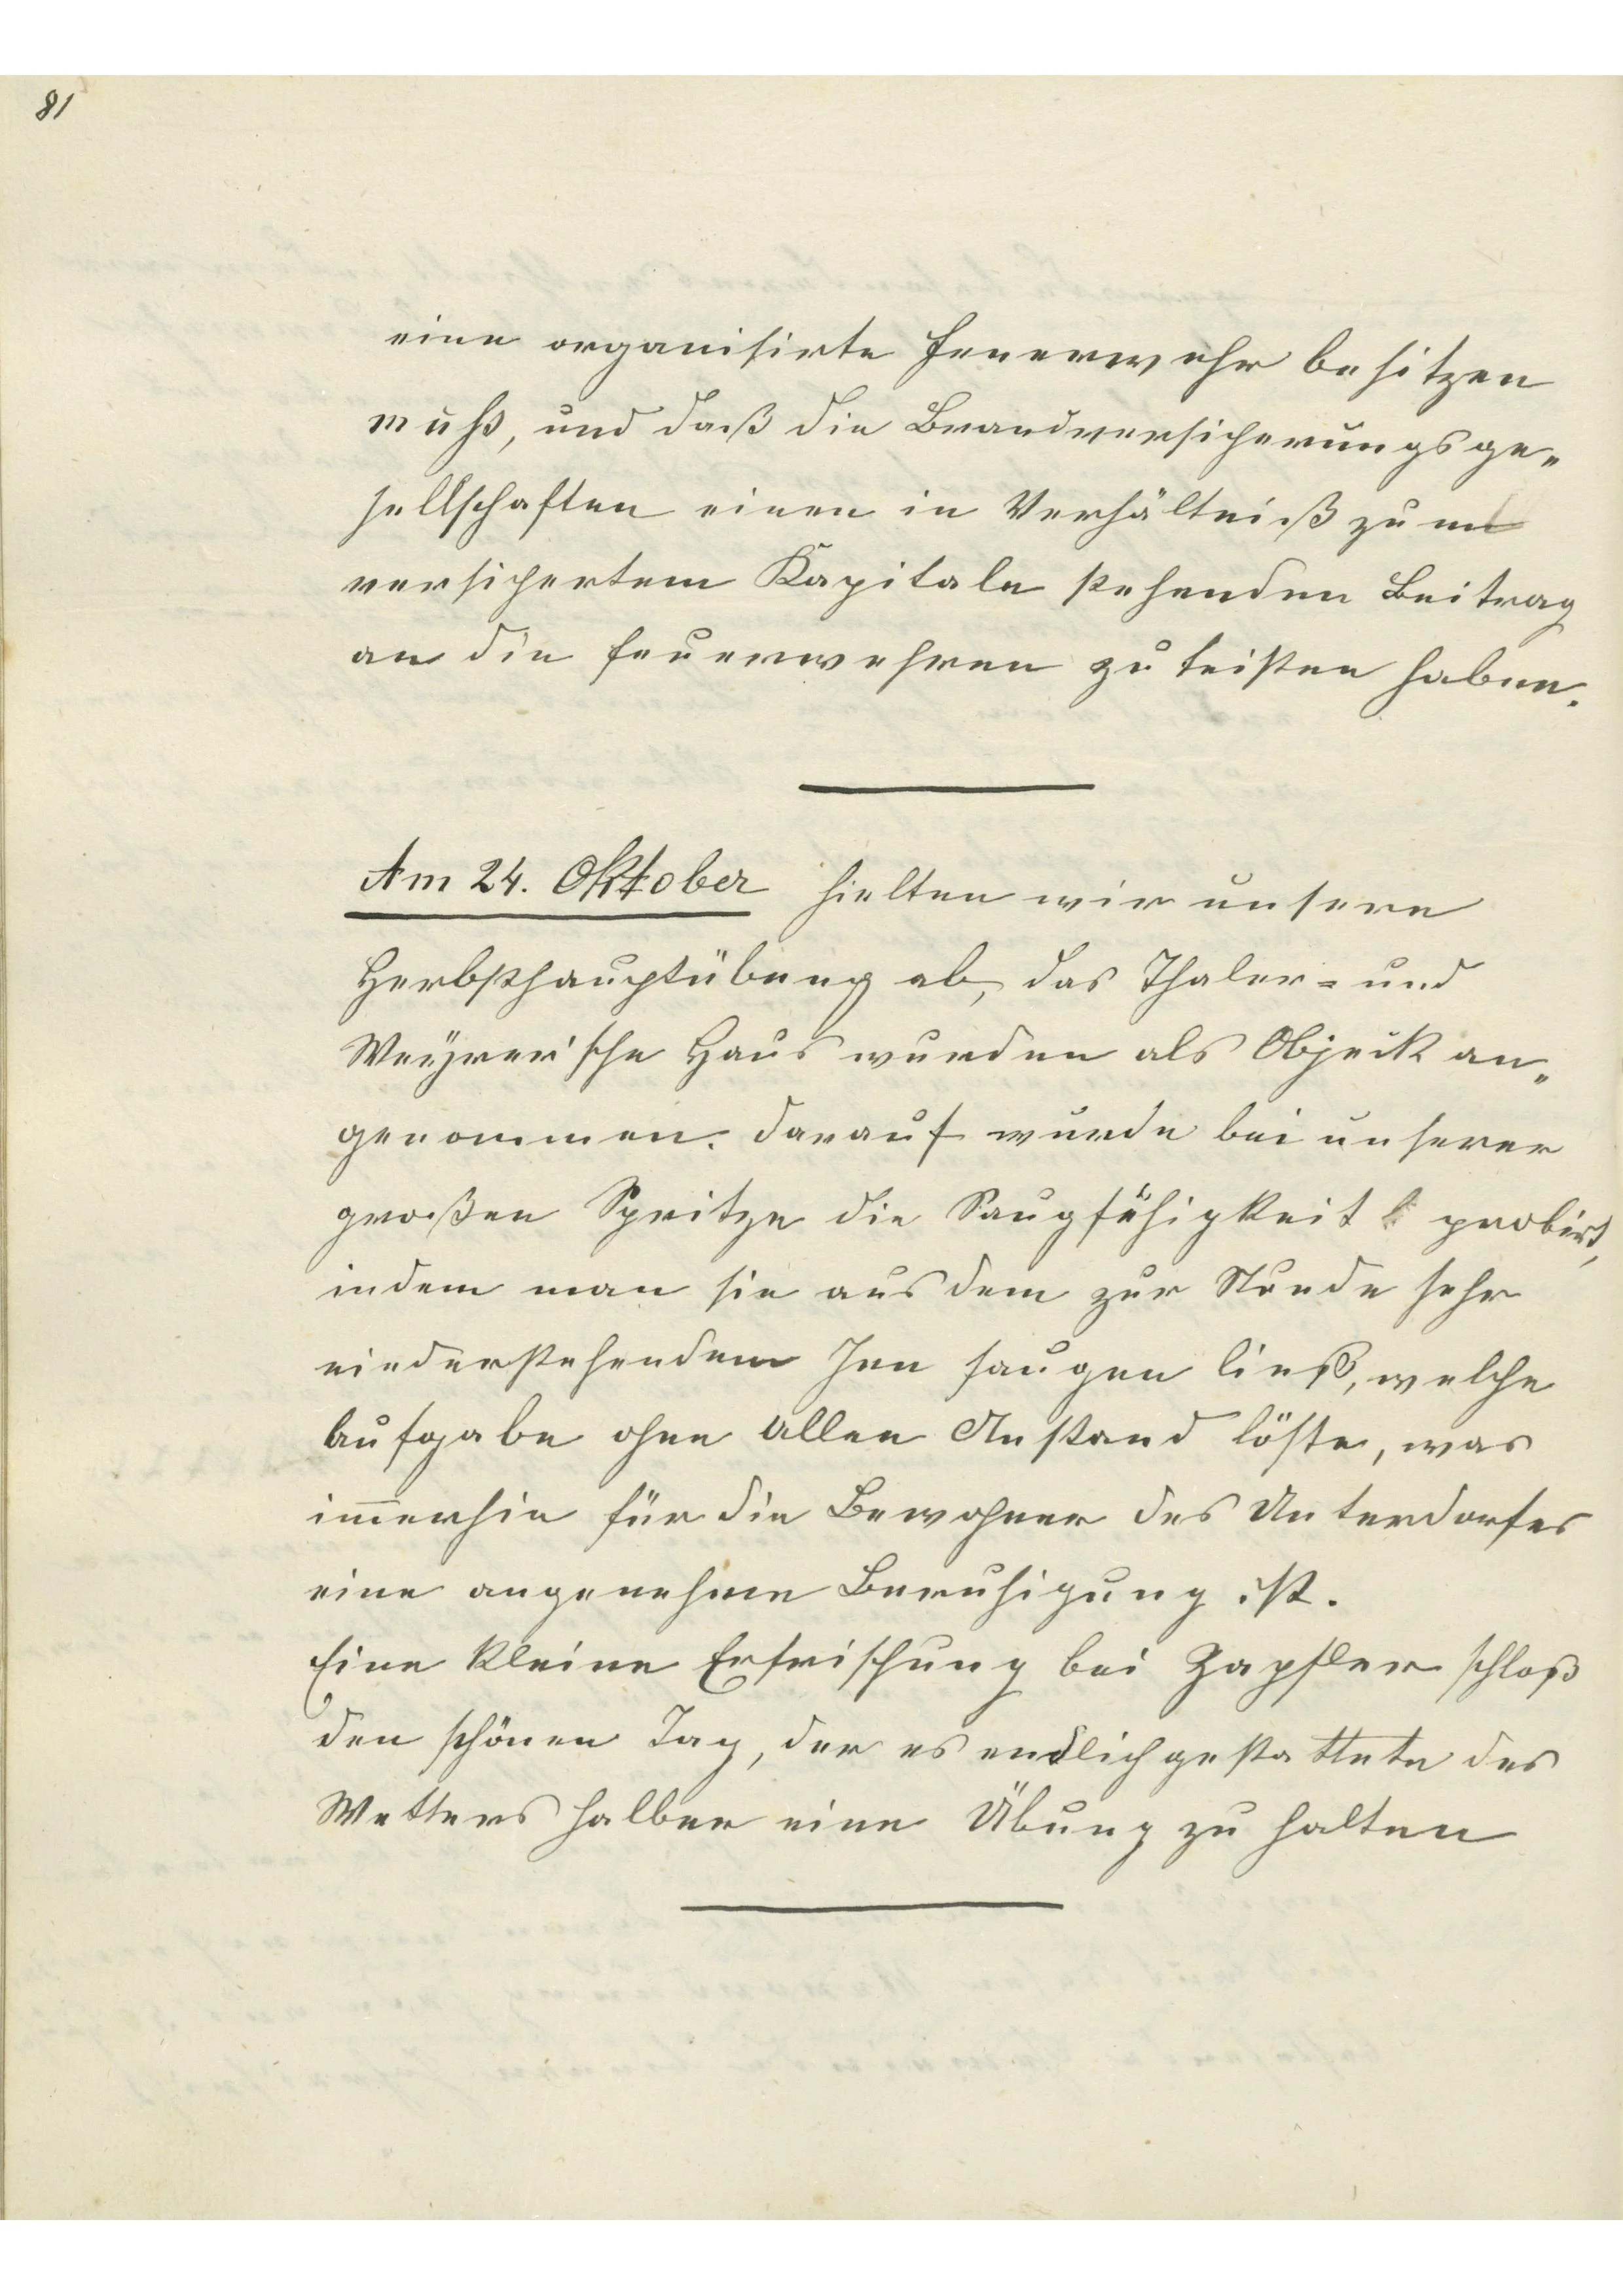 81
eine organisirte Feuerwehr besitzen
muß, und daß die Brandversicherungsge„
sellschaften einen in Verhältniß zum
versichertem Kapitale stehenden Beitrag
an die Feuerwehren zu leisten haben.
Am 24. Oktober hielten wir unsere
Herbsthauptübung ab, das Thaler- und
Weyrer'sche Haus wurden als Objeckt an„
genommen. Darauf wurde bei unserer
großen Spritze die Saugfähigkeit probirt,
indem man sie aus dem zur Stunde sehr
niederstehendem Inn saugen ließ, welche
Aufgabe ohne allen Anstand löste, was
im̅erhin für die Bewohner des Unterdorfes
eine angenehme Beruhigung ist.
Eine kleine Erfrischung bei Zapfler schloß
den schönen Tag, der es endlich gestattete des
Wetters halber eine Übung zu halten